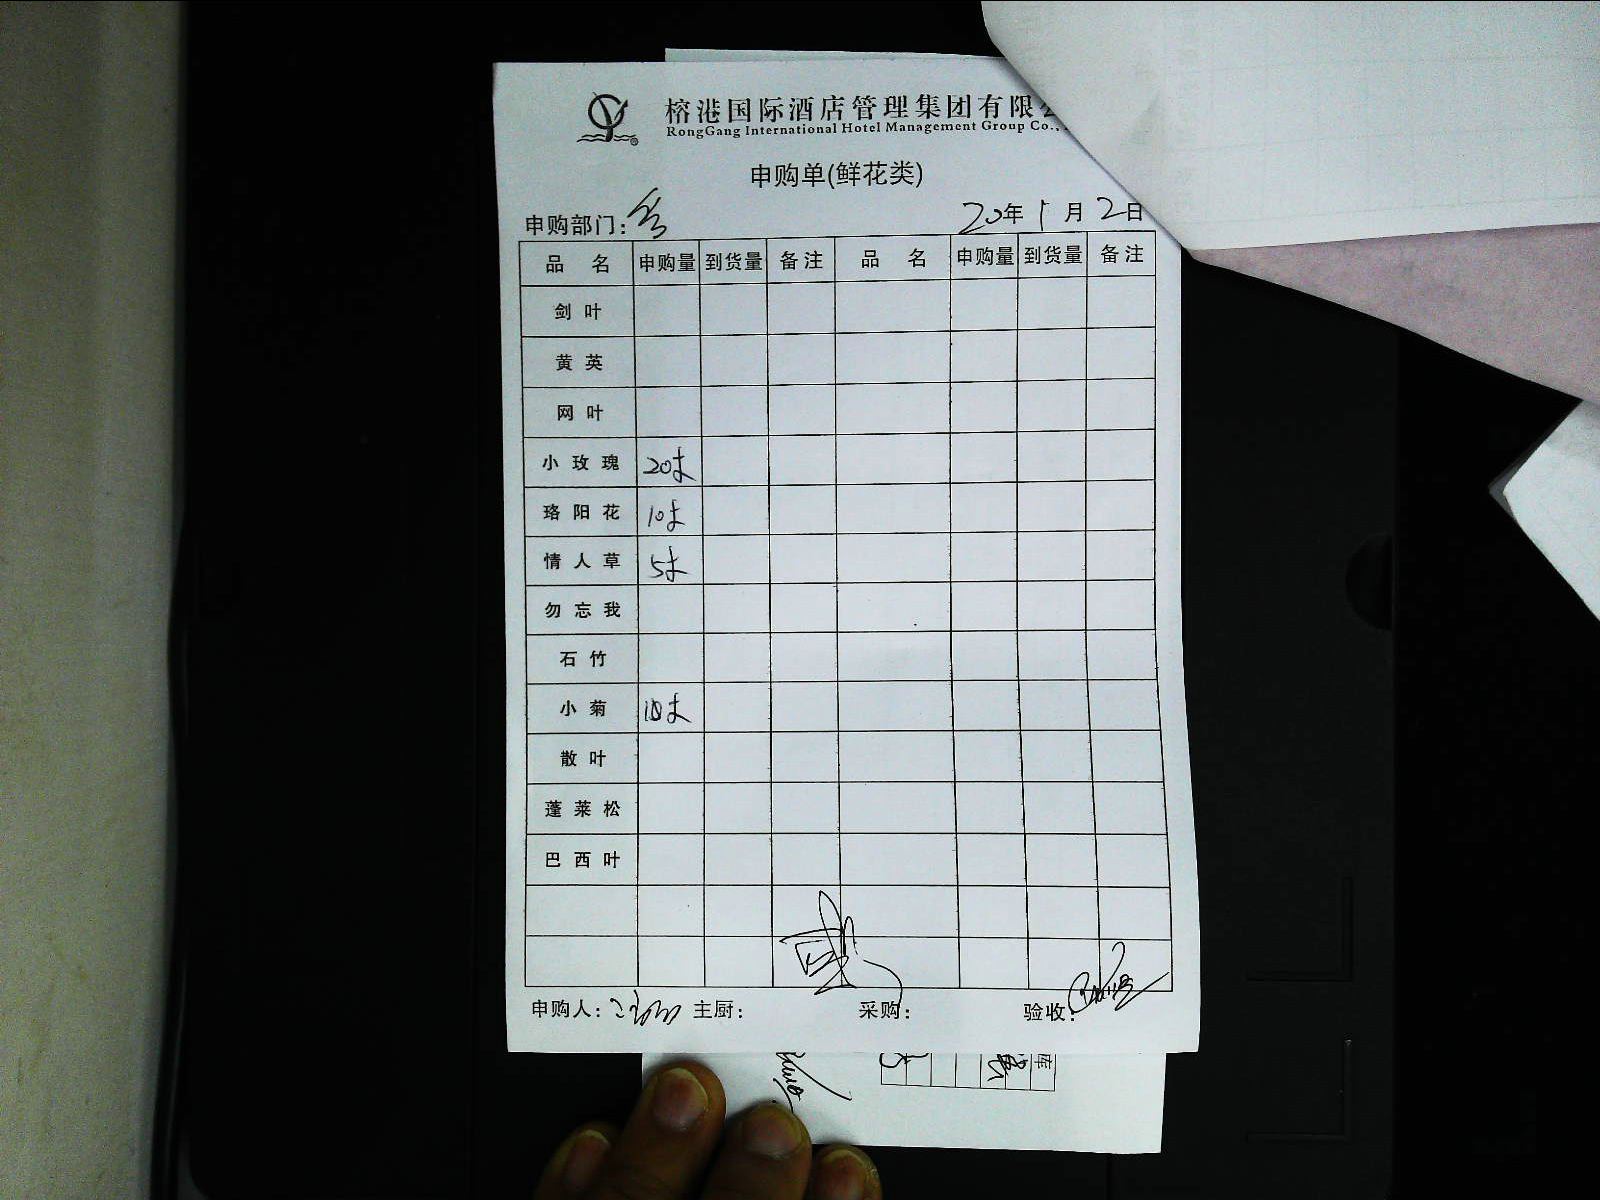 榕港国际酒店管理集团有限
RongGang International Hotel Management Group Co.,
申购单(鲜花类)
申购部门:
20年1月2日
品 名 申购量 到货量 备注 品 名 申购量 到货量 备注
剑叶
黄英
网叶
小玫瑰 20支
珞阳花 10支
情人草 5支
勿忘我
石竹
小菊 10支
散叶
蓬莱松
巴西叶
申购人: 主厨: 采购: 验收: